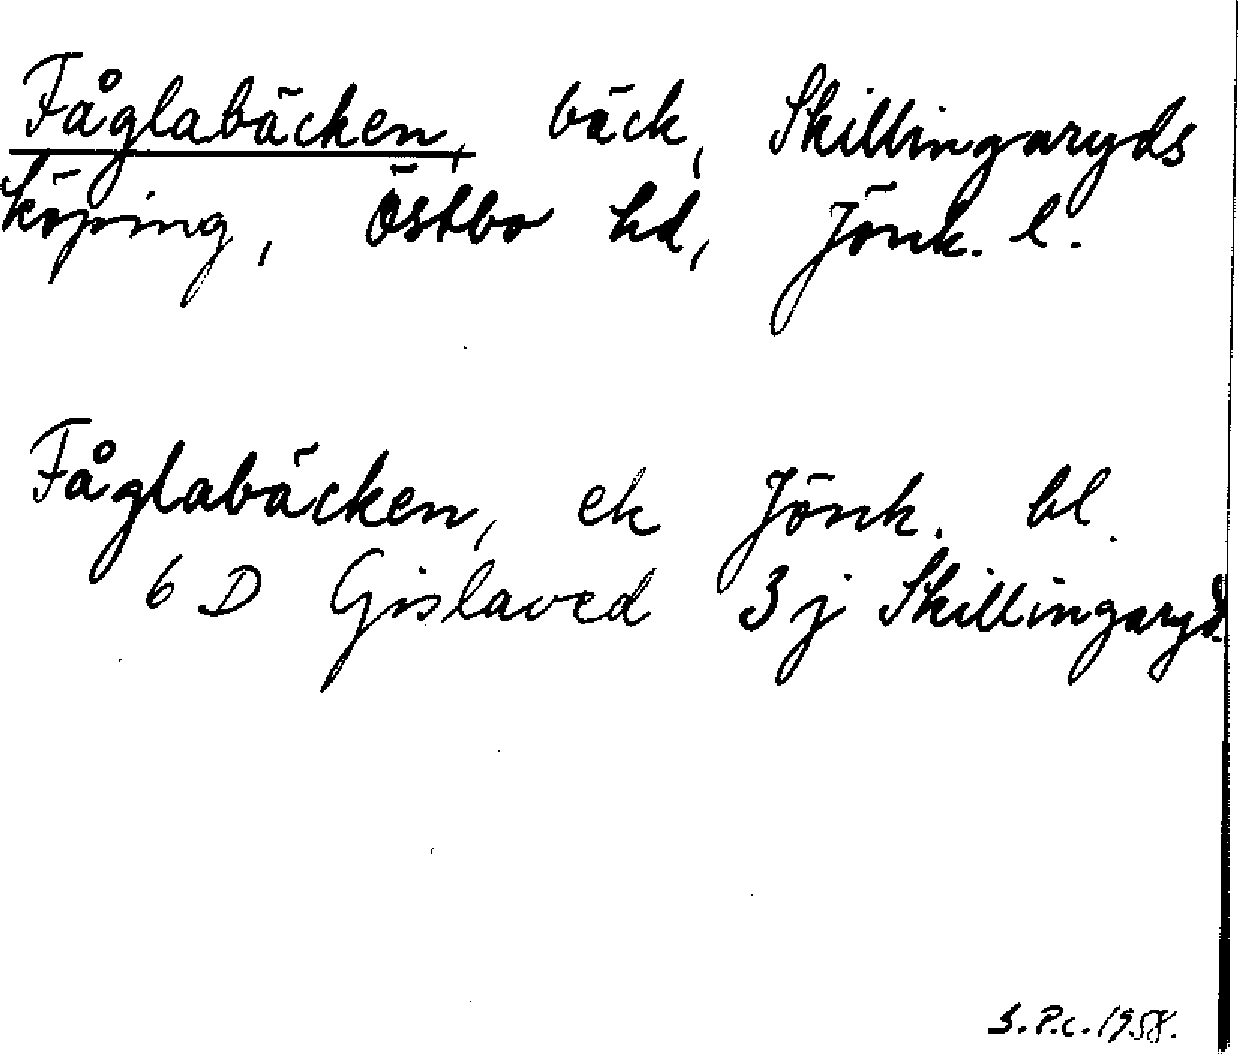 Fåglabäcken, bäck, Skillingaryds
köping, Östbo hd, Jönk. l.
Fåglabäcken, ek Jönk. bl.
6 D Gislaved 3 j Skillingaryd
S.P.c. 1958.